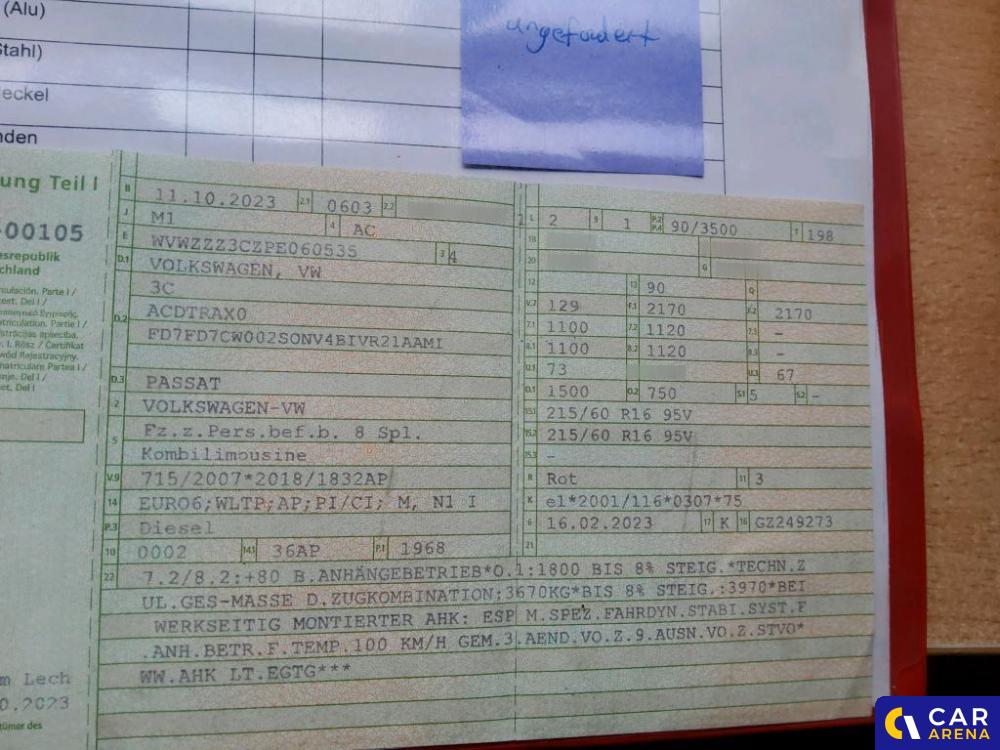 (Alu)
Stahl)
eckel
nden
ungefordert
ung Teil I
-00105
esrepublik
chland
B 11.10.2023 2.1 0603 2.2
J M1 4 AC
E WVWZZZ3CZPE060535 3 4
D.1 VOLKSWAGEN, VW
3C
D.2 ACDTRAX0
FD7FD7CW002SONV4BIVR21AAMI
D.3 PASSAT
2 VOLKSWAGEN-VW
5 Fz.z.Pers.bef.b. 8 Spl.
Kombilimousine
V.9 715/2007*2018/1832AP
14 EURO6;WLTP;AP;PI/CI; M, N1 I
P.3 Diesel
10 0002 14.1 36AP P.1 1968
L 2 9 1 P.2 P.4 90/3500 T 198
18
20 G
12 13 90 Q -
V.7 129 F.1 2170 F.2 2170
7.1 1100 7.2 1120 7.3 -
8.1 1100 8.2 1120 8.3 -
U.1 73 U.3 67
O.1 1500 O.2 750 S.1 5 S.2 -
15.1 215/60 R16 95V
15.2 215/60 R16 95V
15.3 -
R Rot 11 3
K e1*2001/116*0307*75
6 16.02.2023 17 K 16 GZ249273
21
22 7.2/8.2:+80 B.ANHÄNGEBETRIEB*O.1:1800 BIS 8% STEIG.*TECHN.Z
UL.GES-MASSE D.ZUGKOMBINATION:3670KG*BIS 8% STEIG.:3970*BEI
WERKSEITIG MONTIERTER AHK: ESP M.SPEZ.FAHRDYN.STABI.SYST.F
.ANH.BETR.F.TEMP.100 KM/H GEM.3.AEND.VO.Z.9.AUSN.VO.Z.STVO*
WW.AHK LT.EGTG***
m Lech
0.2023
tümer des
CAR
ARENA